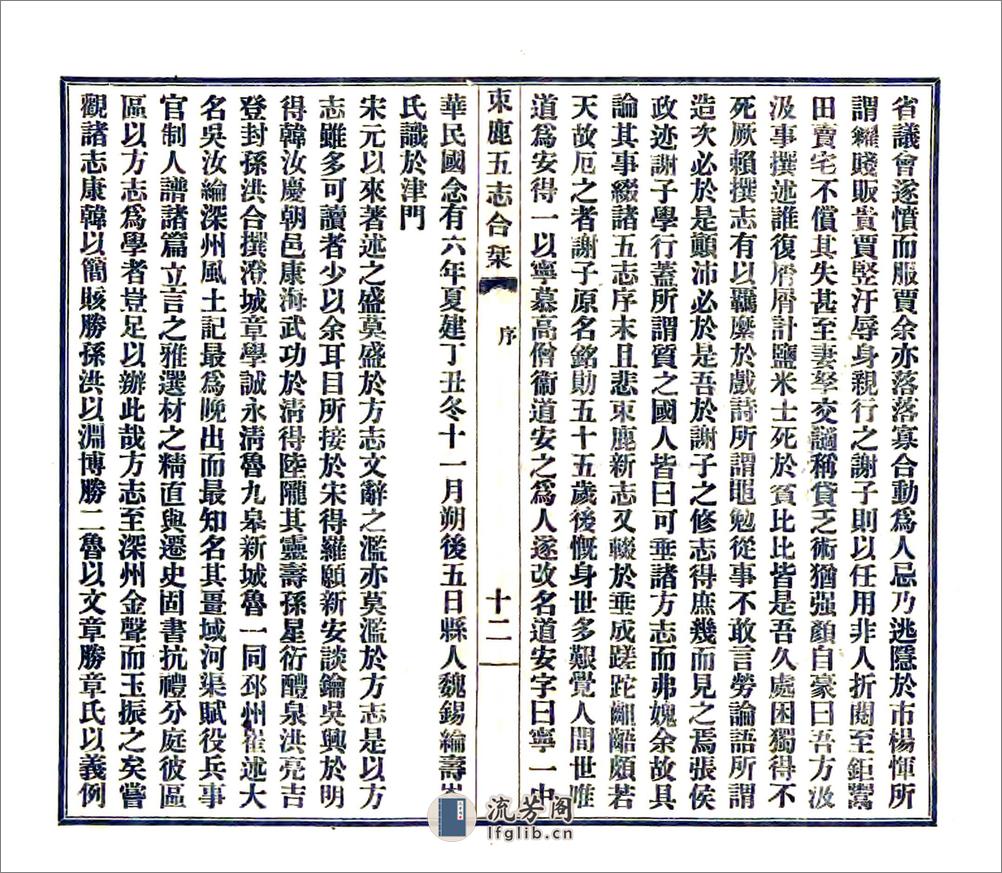 省議會遂憤而服賈余亦落落寡合動為人忌乃逃隱於市楊惲所
謂糴賤販貴賈豎汙辱身親行之謝子則以任用非人折閱至鉅鬻
田賣宅不償其失甚至妻孥交讁稱貸乏術猶强顏自豪曰吾方汲
汲事撰述誰復屑屑計鹽米士死於貧比比皆是吾久處困獨得不
死厥賴撰志有以羈縻於戲詩所謂黽勉從事不敢言勞論語所謂
造次必於是顚沛必於是吾於謝子之修志得庶幾而見之焉張侯
政迹謝子學行蓋所謂質之國人皆曰可垂諸方志而弗媿余故具
論其事綴諸五志序末且悲束鹿新志又輟於垂成蹉跎齟齬頗若
天故厄之者謝子原名銘勛五十五歲後慨身世多艱覺人間世唯
道為安得一以寧慕高僧衞道安之為人遂改名道安字曰寧一中
束鹿五志合栞
序
十二
華民國念有六年夏建丁丑冬十一月朔後五日縣人魏錫綸壽
氏識於津門
宋元以來著述之盛莫盛於方志文辭之濫亦莫濫於方志是以方
志雖多可讀者少以余耳目所接於宋得羅願新安談鑰吳興於明
得韓汝慶朝邑康海武功於淸得陸隴其靈壽孫星衍醴泉洪亮吉
登封孫洪合撰澄城章學誠永淸魯九皋新城魯一同邳州崔述大
名吳汝綸深州風土記最為晚出而最知名其畺域河渠賦役兵事
官制人譜諸篇立言之雅選材之精直與遷史固書抗禮分庭彼區
區以方志為學者豈足以辦此哉方志至深州金聲而玉振之矣嘗
觀諸志康韓以簡賅勝孫洪以淵博勝二魯以文章勝章氏以義例
流芳阁
lfglib.cn